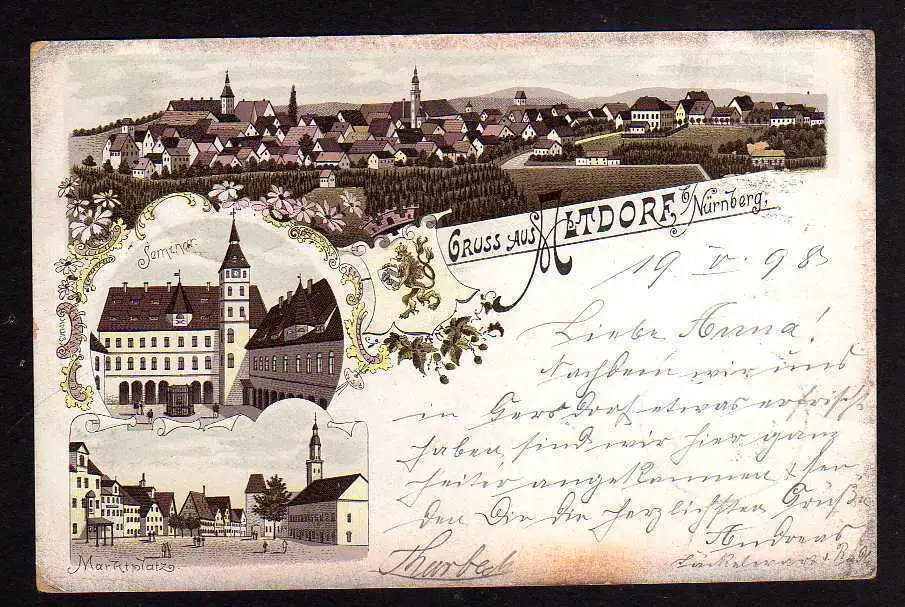 GRUSS AUS ALTDORF b/Nürnberg.
19. V. 98
Seminar.
Liebe Anna!
Nachdem wir uns
in Gersdorf etwas erfrischt
haben, sind wir hier ganz
heiter angekommen & sen-
den Dir die herzlichsten Grüße
Andreas
Marktplatz.